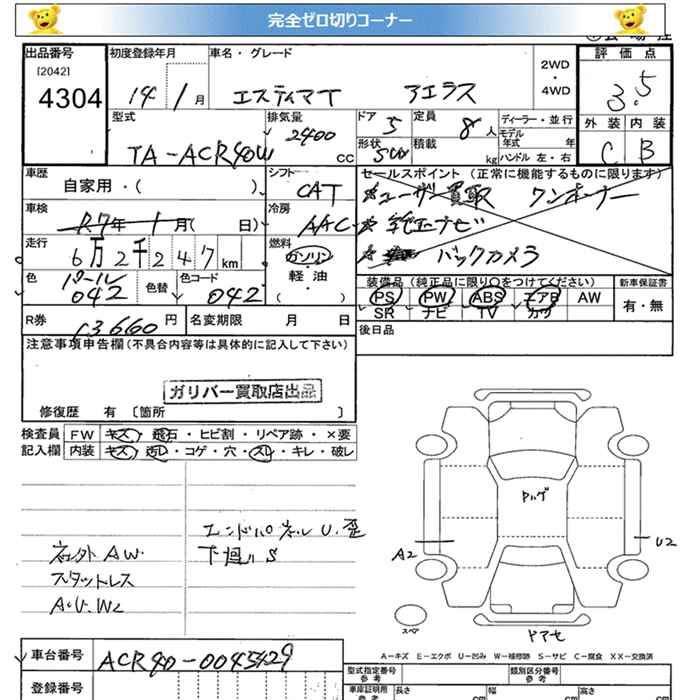 完全ゼロ切りコーナー
出品番号
[2042]
4304
初度登録年月
14 1月
車名・グレード
エスティマT アエラス
2WD
・
4WD
評価点
3.5
外装 内装
C B
型式
TA-ACR40W
排気量
2400
CC
ドア 5
形状
定員
8人
積載
kg
ディーラー・並行
モデル
年式 年
ハンドル 左・右
車歴
自家用・( )
シフト
CAT
セールスポイント (正常に機能するものに限ります)
ユーザー買取 ワンオーナー
純正ナビ
バックカメラ
車検
R7年 1月( 日)
冷房
AAC
走行
6万2千247km
燃料
ガソリン
軽・油
( )
色
パール
042
色替
色コード
042
装備品 (純正品に限り○をつけてください)
PS PW ABS エアB AW
SR ナビ TV カワ
新車保証書
有・無
R券
13660円
名変期限 月 日
後日品
注意事項申告欄(不具合内容等は具体的に記入して下さい)
ガリバー買取店出品
修復歴 有 〔箇所 〕
検査員 FW キズ・飛石・ヒビ割・リペア跡・×要
記入欄 内装 キズ・汚レ・コゲ・穴・スレ・キレ・破レ
エンドパネルU.歪
下廻りS
社外AW.
スタットレス
A.U.W2
Pハゲ
A2
U2
スペア
ドアマセ
A=キズ E=エクボ U=凹み W=補修跡 S=サビ C=腐食 XX=交換済
車台番号
ACR40-0045429
登録番号
型式指定番号
参考
類別区分番号
参考
車庫証明用
参考
長さ
cm
幅
cm
高さ
cm